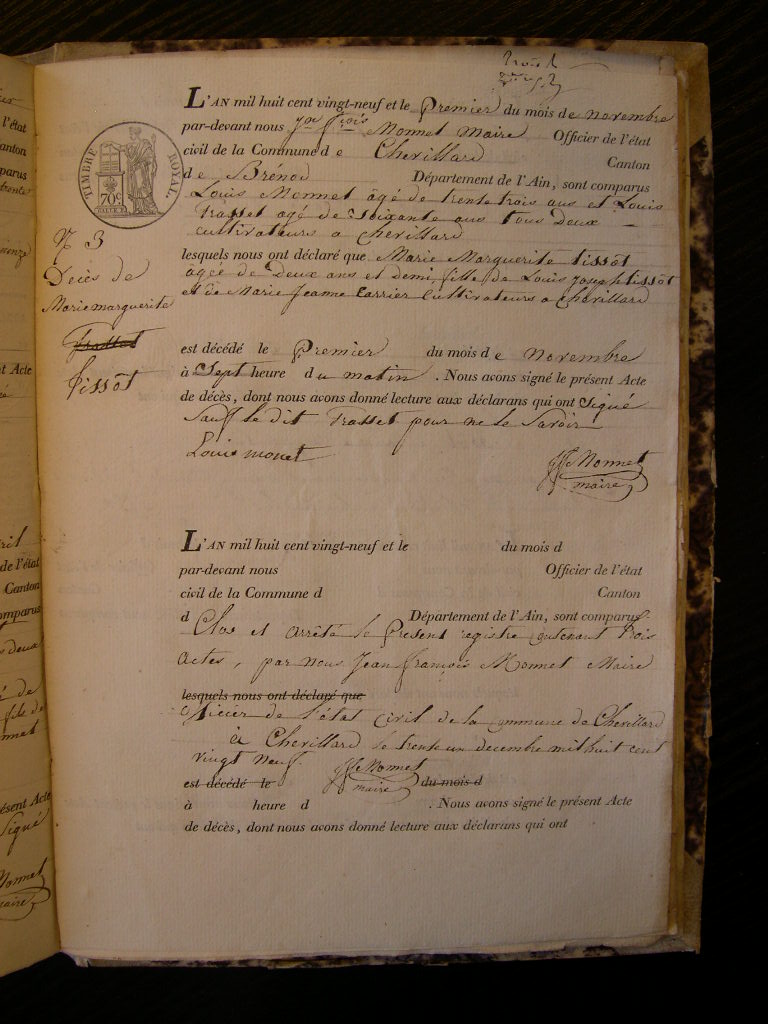 L'AN mil huit cent vingt-neuf et le Premier du mois de novembre
par-devant nous jn fçois Monnet Maire Officier de l'état
civil de la Commune de Chevillard Canton
de Brénod Département de l'Ain, sont comparus
Louis Monnet âgé de trente trois ans et Louis
Frasset agé de Soixante ans tous Deux
cultivateurs a chevillard
lesquels nous ont déclaré que Marie Marguerite tissot
agée de Deux ans et demi, fille de Louis Joseph tissot
et de Marie Jeanne Carrier Cultivateurs a Chevillard
est décédé le Premier du mois de novembre
à Sept heure du matin . Nous avons signé le présent Acte
de décès, dont nous avons donné lecture aux déclarans qui ont signé
Sauf le dit Frasset pour ne le Savoir
Louis monet
Monnet
maire
TIMBRE ROYAL.
70c
N 3
Décès de
Marie marguerite
Frasset
tissot
L'AN mil huit cent vingt-neuf et le du mois d
par-devant nous Officier de l'état
civil de la Commune d Canton
d Département de l'Ain, sont comparus
Clos et arrêté le Present registre contenant trois
actes, par nous Jean françois Monnet Maire
lesquels nous ont déclaré que
officier de l'état civil de la commune de Chevillard
à Chevillard le trente un decembre mil huit cent
vingt neuf.
Monnet
maire
est décédé le du mois d
à heure d . Nous avons signé le présent Acte
de décès, dont nous avons donné lecture aux déclarans qui ont
l'état
Canton
comparus
Acte
de l'état
Canton
comparus
deux
de
fille de
présent Acte
signé
Monnet
maire